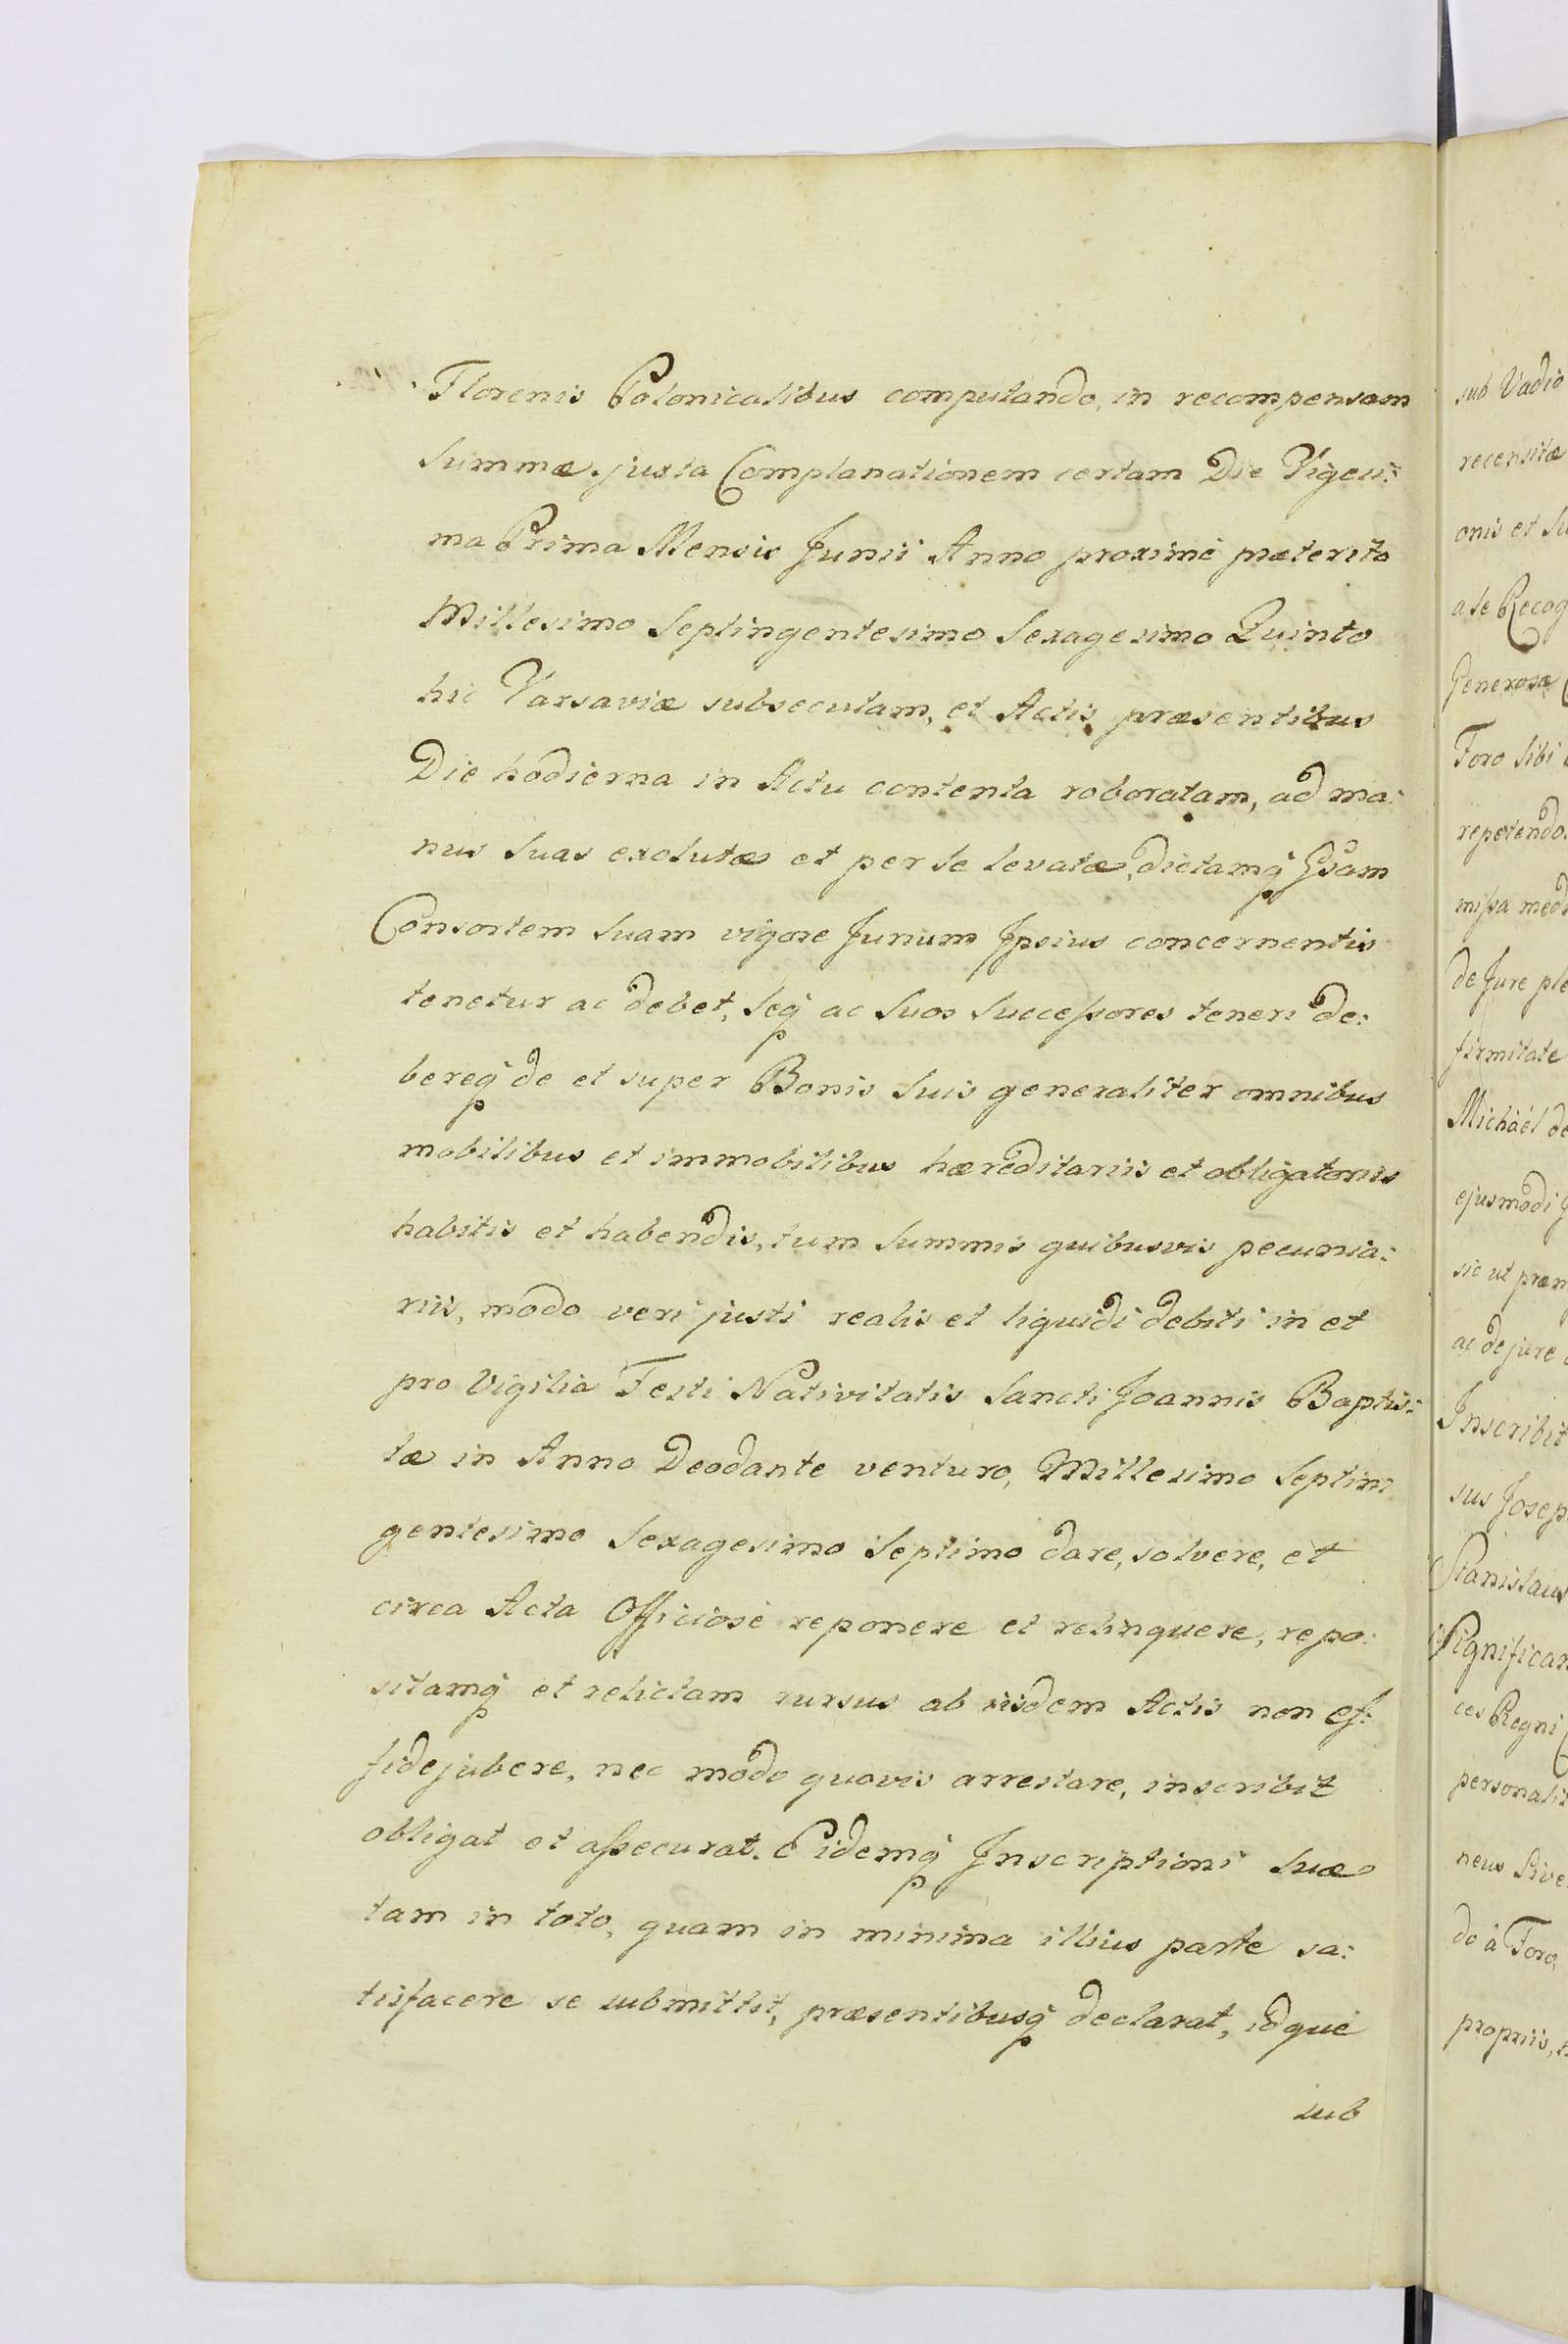 Florenis Polonicalibus computando, in recompensam
Summæ juxta Complanationem certam Die Vigesi:
ma Prima Mensis Junii Anno proximè præterito
Millesimo Septingentesimo Sexagesimo Quinto
hic Varsaviæ subsecutam, et Actis præsentibus
Die hodierna in Actu contenta roboratam, ad ma:
nus suas exolutæ et per se levatæ, dictamq́ Gsam
Consortem suam vigore Jurium Ipsius concernentis
tenetur ac debet, seq́ ac suos Successores teneri de:
bereq́ de et super Bonis suis generaliter omnibus
mobilibus et immobilibus hæreditariis et obligatoriis
habitis et habendis, tum Summis quibusvis pecunia:
riis, modo veri justi realis et liquidi debiti in et
pro Vigilia Festi Nativitatis Sancti Joannis Baptis:
tæ in Anno Deodante venturo, Millesimo Septin:
gentesimo Sexagesimo Septimo dare, solvere, et
circa Acta Officiosè reponere et relinquere, repo:
sitamq́ et relictam rursus ab iisdem Actis non ef:
fidejubere, nec modo quovis arrestare, inscribit
obligat et assecurat. Eidemq́ Inscriptioni suæ
tam in toto, quam in minima illius parte sa:
tisfacere se submittit, præsentibusq́ declarat, idquè
sub
sub Vadio
recensitæ
onis et Su
a se Recog
Generosæ
Foro sibi
repetendo
missa med
de Jure ple
firmitate
Michaël de
ejusmodi
sic ut præm
ac de jure
Inscribit
sus Josep
Stanislaus
Significan
ces Regni
personalit
neus Sive
do à Foro,
propriis,